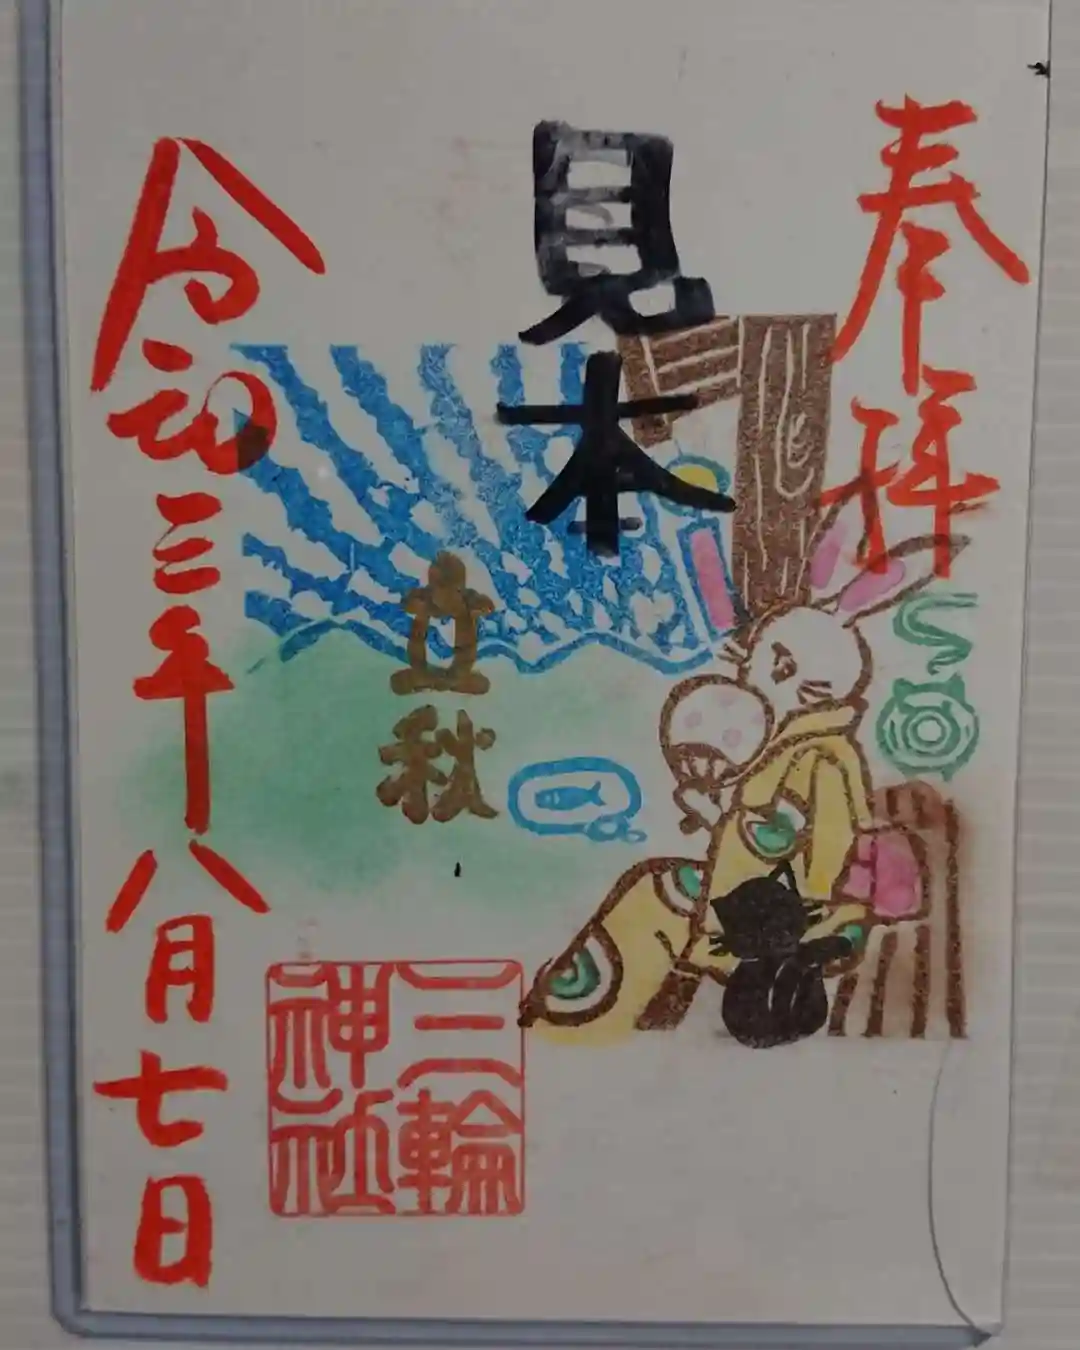 奉拝
見本
立秋
三輪
神社
令和三年八月七日